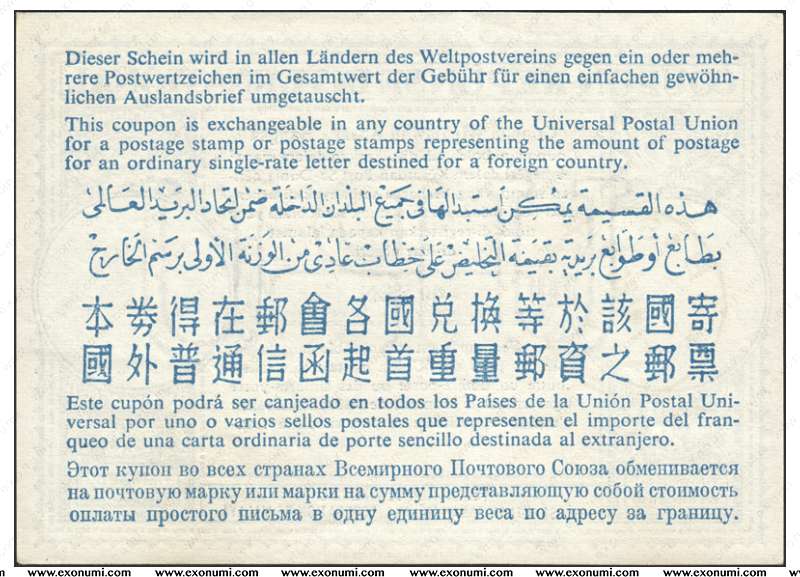 Dieser Schein wird in allen Ländern des Weltpostvereins gegen ein oder meh-
rere Postwertzeichen im Gesamtwert der Gebühr für einen einfachen gewöhn-
lichen Auslandsbrief umgetauscht.
This coupon is exchangeable in any country of the Universal Postal Union
for a postage stamp or postage stamps representing the amount of postage
for an ordinary single-rate letter destined for a foreign country.
هذه القسيمة يمكن استبدالها فى جميع البلدان الداخلة ضمن اتحاد البريد العالمى
بطابع أو طوابع بريدية بقيمة التخليص على خطاب عادى من الوزنة الأولى برسم الخارج
本券得在郵會各國兌換等於該國寄
國外普通信函起首重量郵資之郵票
Este cupón podrá ser canjeado en todos los Países de la Unión Postal Uni-
versal por uno o varios sellos postales que representen el importe del fran-
queo de una carta ordinaria de porte sencillo destinada al extranjero.
Этот купон во всех странах Всемирного Почтового Союза обменивается
на почтовую марку или марки на сумму представляющую собой стоимость
оплаты простого письма в одну единицу веса по адресу за границу.
www.exonumi.com www.exonumi.com www.exonumi.com www.exonumi.com www.exonumi.com www.exonumi.com